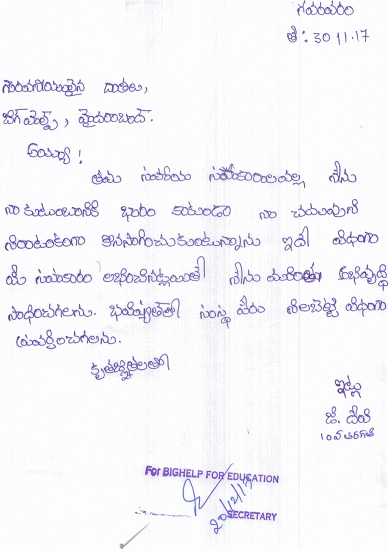 గవరవరం
తే: 30.11.17
గౌరవనీయులైన దాతలు,
బిగ్ హెల్ప్, హైదరాబాద్.
అయ్యా!
తమ సహాయ సహకారాలవల్ల నేను
నా కుటుంబానికి భారం కాకుండా నా చదువుని
కొనసాగించుకుంటున్నాను ఇదే విధంగా
మీ సహకారం లభించినట్లయితే నేను మరింత అభివృద్ధి
సాధించగలను. భవిష్యత్తులో సంస్థ పేరు నిలబెట్టే విధంగా
ప్రవర్తించగలను.
కృతజ్ఞతలతో
ఇట్లు
జె. దేవి
10వ తరగతి
For BIGHELP FOR EDUCATION
SECRETARY